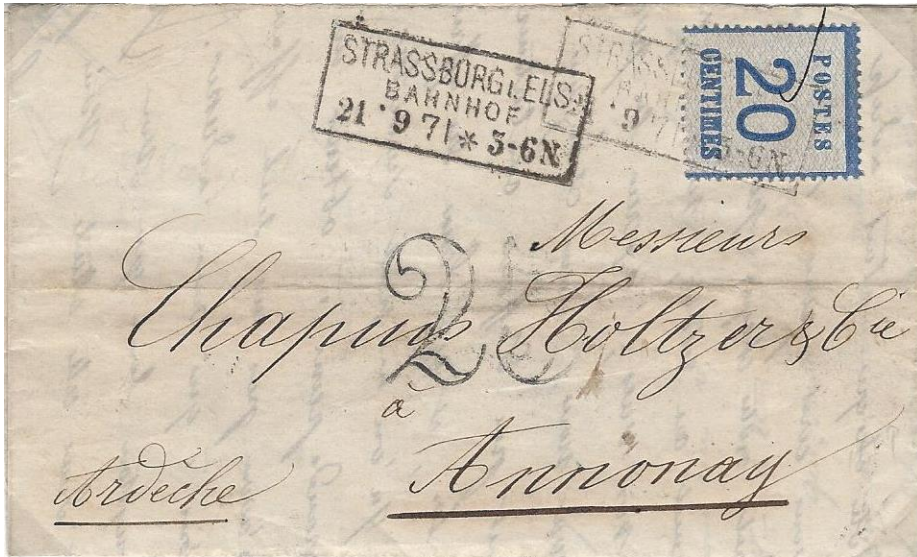 STRASSBURG I. ELS.
BAHNHOF
21 9 71 * 3-6N
POSTES
20
CENTIMES
9 71 3-6N
25
Messieurs
Chapuis Holtzer & Cie
à
Annonay
Ardèche